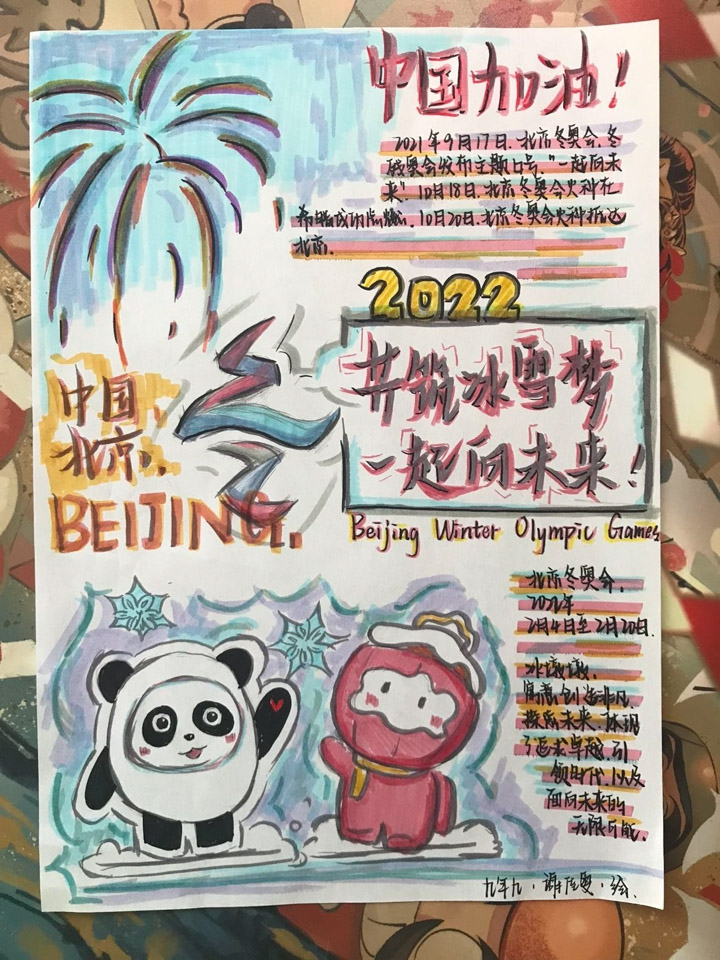 中国加油！
2021年9月17日.北京冬奥会.冬
残奥会发布主题口号,"一起向未
来".10月18日.北京冬奥会火种在
希腊成功点燃.10月20日.北京冬奥会火种抵达
北京.
2022
共筑冰雪梦
一起向未来！
Beijing Winter Olympic Games
中国.
北京.
BEIJING.
北京冬奥会.
2022年
2月4日至2月20日.
冰墩墩.
寓意创造非凡.
探索未来.体现
了追求卓越.引
领时代.以及
面向未来的
无限可能.
九年九.谢佳.绘.